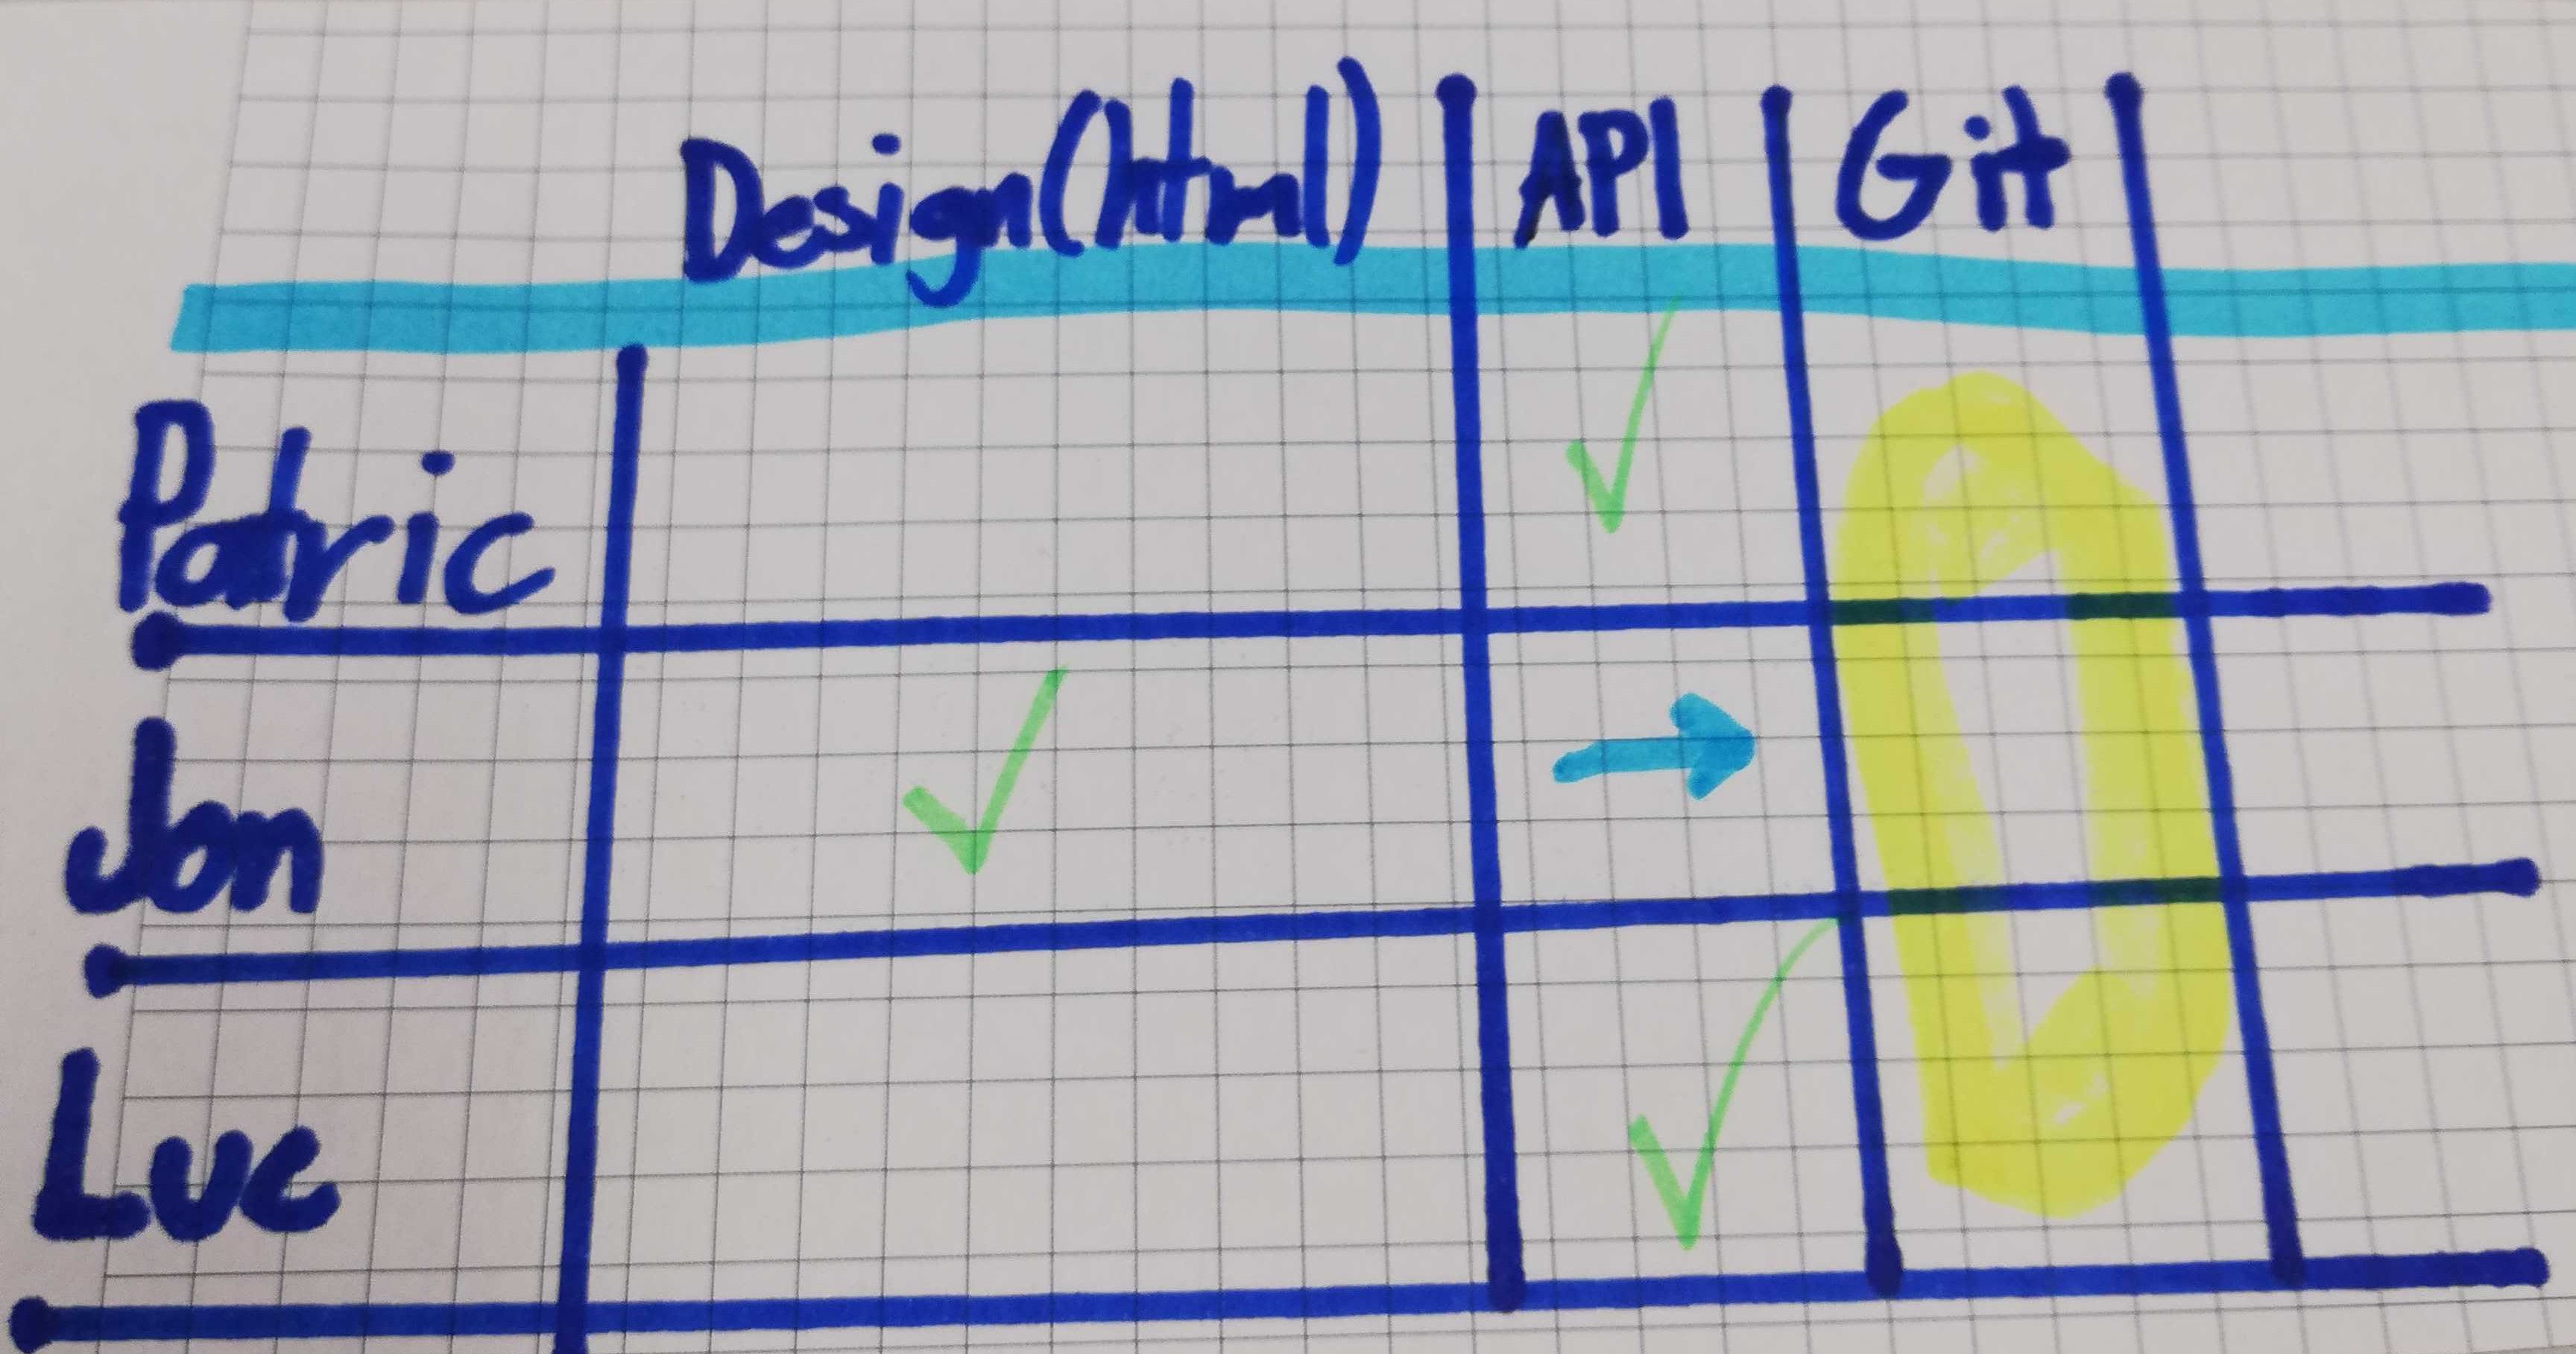 Design(html) API Git
Patric
Jon
Luc